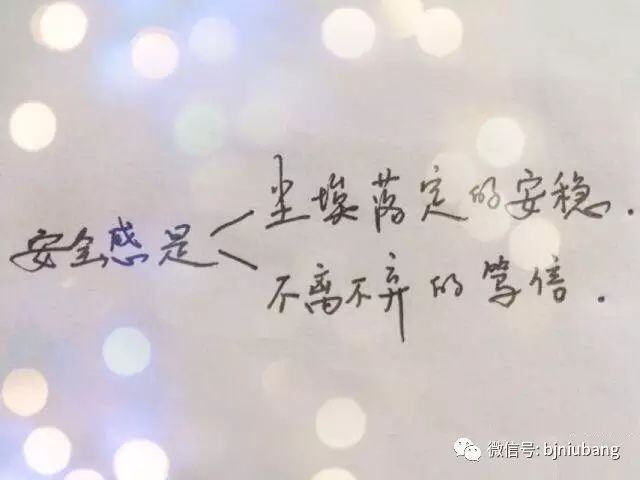 安全感是
尘埃落定的安稳.
不离不弃的笃信.
微信号: bjniubang